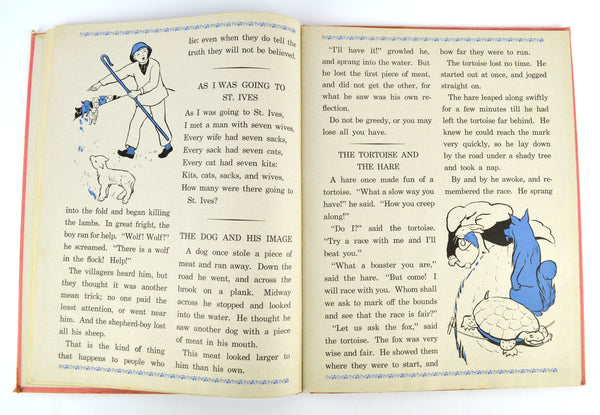 into the fold and began killing
the lambs. In great fright, the
boy ran for help. "Wolf! Wolf!"
he screamed. "There is a wolf
in the flock! Help!"
The villagers heard him, but
they thought it was another
mean trick; no one paid the
least attention, or went near
him. And the shepherd-boy lost
all his sheep.
That is the kind of thing
that happens to people who
lie: even when they do tell the
truth they will not be believed.
AS I WAS GOING TO
ST. IVES
As I was going to St. Ives,
I met a man with seven wives,
Every wife had seven sacks,
Every sack had seven cats,
Every cat had seven kits:
Kits, cats, sacks, and wives,
How many were there going to
St. Ives?
THE DOG AND HIS IMAGE
A dog once stole a piece of
meat and ran away. Down the
road he went, and across the
brook on a plank. Midway
across he stopped and looked
into the water. He thought he
saw another dog with a piece
of meat in his mouth.
This meat looked larger to
him than his own.
"I'll have it!" growled he,
and sprang into the water. But
he lost the first piece of meat,
and did not get the other, for
what he saw was his own re-
flection.
Do not be greedy, or you may
lose all you have.
THE TORTOISE AND
THE HARE
A hare once made fun of a
tortoise. "What a slow way you
have!" he said. "How you creep
along!"
"Do I?" said the tortoise.
"Try a race with me and I'll
beat you."
"What a boaster you are,"
said the hare. "But come! I
will race with you. Whom shall
we ask to mark off the bounds
and see that the race is fair?"
"Let us ask the fox," said
the tortoise. The fox was very
wise and fair. He showed them
where they were to start, and
how far they were to run.
The tortoise lost no time. He
started out at once, and jogged
straight on.
The hare leaped along swiftly
for a few minutes till he had
left the tortoise far behind. He
knew he could reach the mark
very quickly, so he lay down
by the road under a shady tree
and took a nap.
By and by he awoke, and re-
membered the race. He sprang